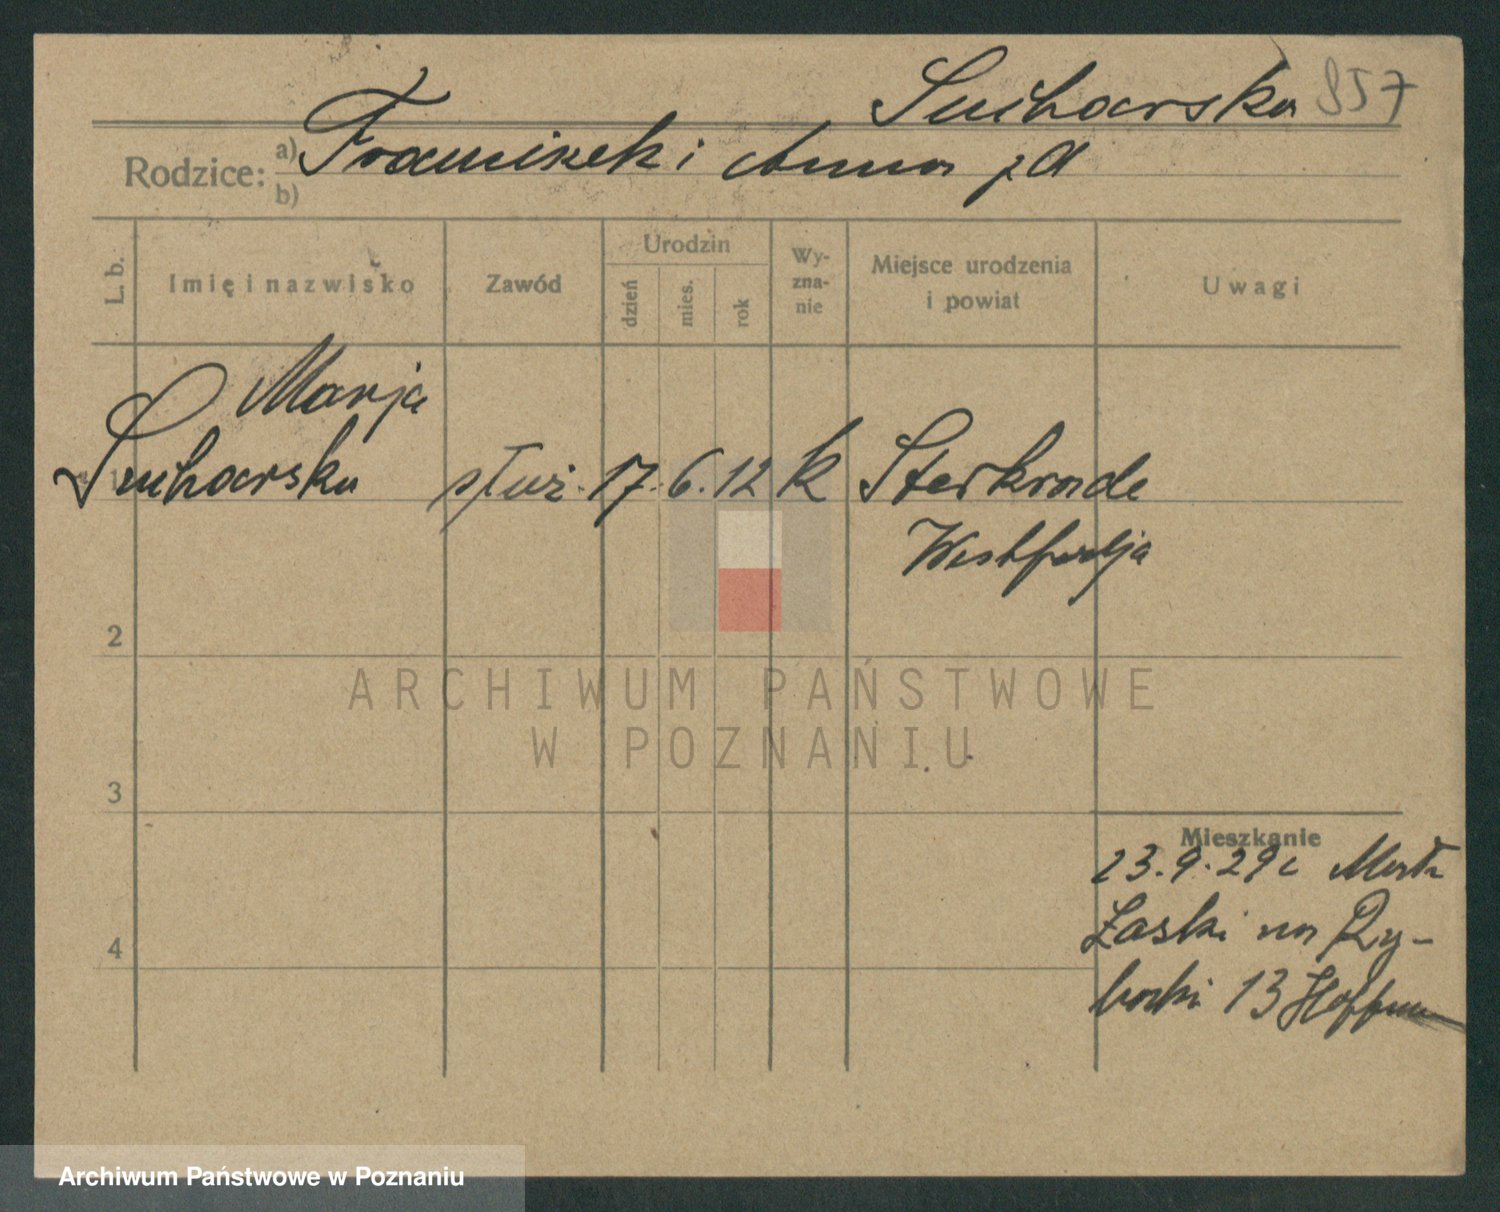 Sucharska 857
Rodzice: a) Franciszek i Anna z d
b)
L. b. Imię i nazwisko Zawód Urodzin dzień mies. rok Wy-zna-nie Miejsce urodzenia i powiat Uwagi
Marja
Sucharska służ. 17. 6. 12 k Sterkrade
Westfalja
2
ARCHIWUM PAŃSTWOWE
W POZNANIU
3
Mieszkanie
23.9.29 z
Łaski na Ry-
4
barki 13 Hoffman
Archiwum Państwowe w Poznaniu